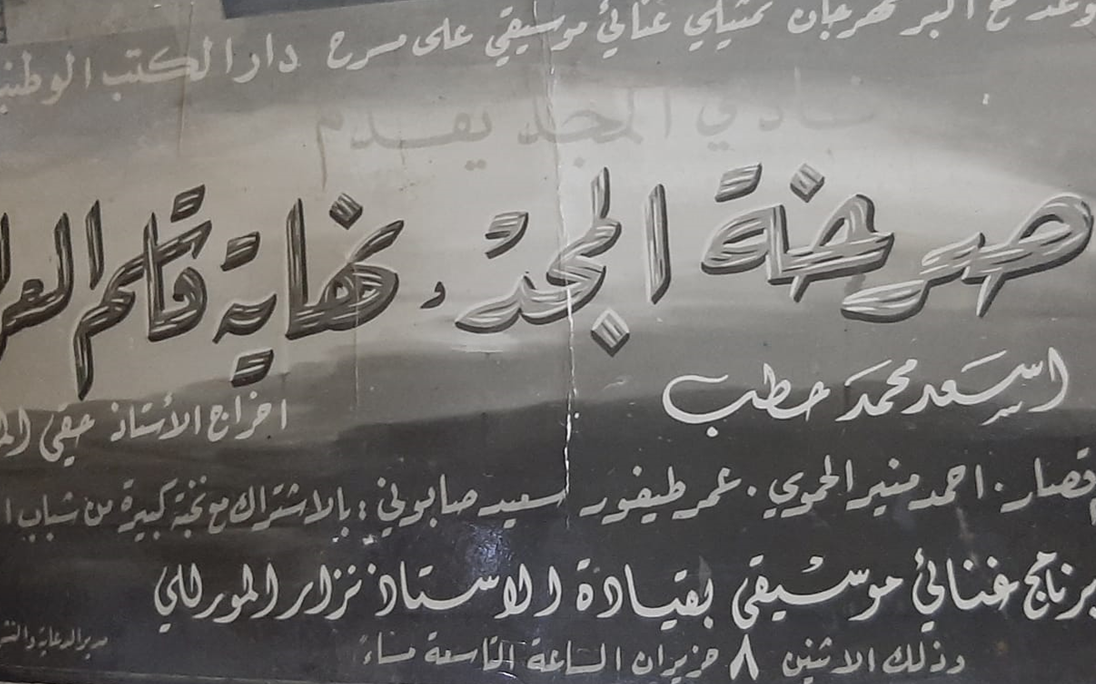 وعد مع اكبر مهرجان تمثيلي غنائي موسيقي على مسرح دار الكتب الوطنية
نادي المجد يقدم
صرخة المجد و نهاية قاسم
اسعد محمد حطب
اخراج الأستاذ حقي
قصار . احمد منير الحموي . عمر طيفور سعيد صابوني : بالاشتراك مع نخبة كبيرة من شباب
برنامج غنائي موسيقي بقيادة الاستاذ نزار المورللي
مدير الدعاية والنشر
وذلك الاثنين ٨ حزيران الساعة التاسعة مساءً